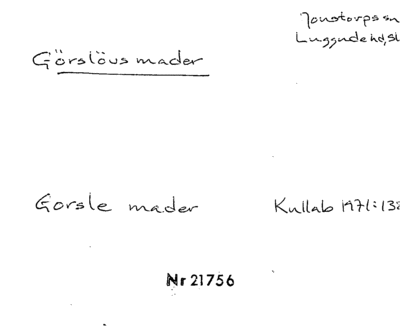 Jonstorps sn
Luggude hd, Sk
Görslövs mader
Gorsle mader
Kullab 1971:132
Nr 21756